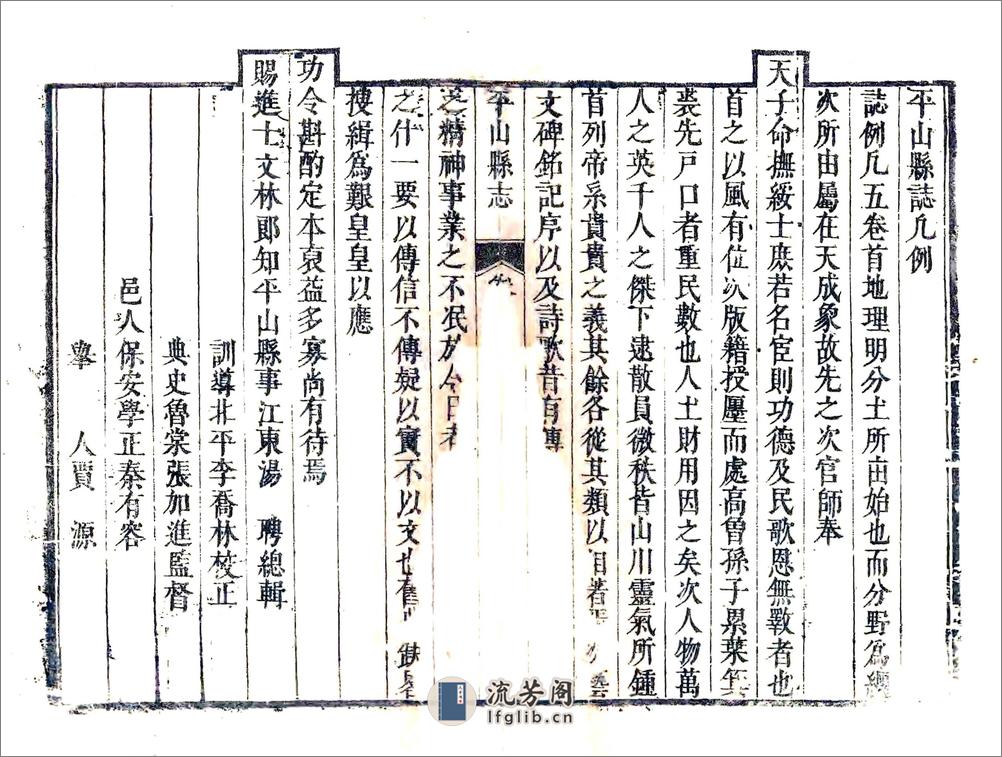 平山縣誌凡例
誌例凡五卷首地理明分土所由始也而分野爲纏
次所由屬在天成象故先之次官師奉
天子命撫綏士庶若名宦則功德及民歌恩無斁者也
首之以風有位次版籍授廛而處高曾孫子累葉箕
裘先戸口者重民數也人土財用因之矣次人物萬
人之英千人之傑下逮散員微秩皆山川靈氣所鍾
首列帝系貴貴之義其餘各從其類以相著 藝
文碑銘記序以及詩歌昔有專
平山縣志
之精神事業之不泯於今日者
之什一要以傳信不傳疑以實不以文也舊 缺
搜緝爲艱皇皇以應
功令斟酌定本裒益多寡尚有待焉
賜進士文林郎知平山縣事江東湯 聘總輯
訓導北平李喬林校正
典史魯棠張加進監督
邑人保安學正秦有容
擧 人賈 源
流芳阁
lfglib.cn